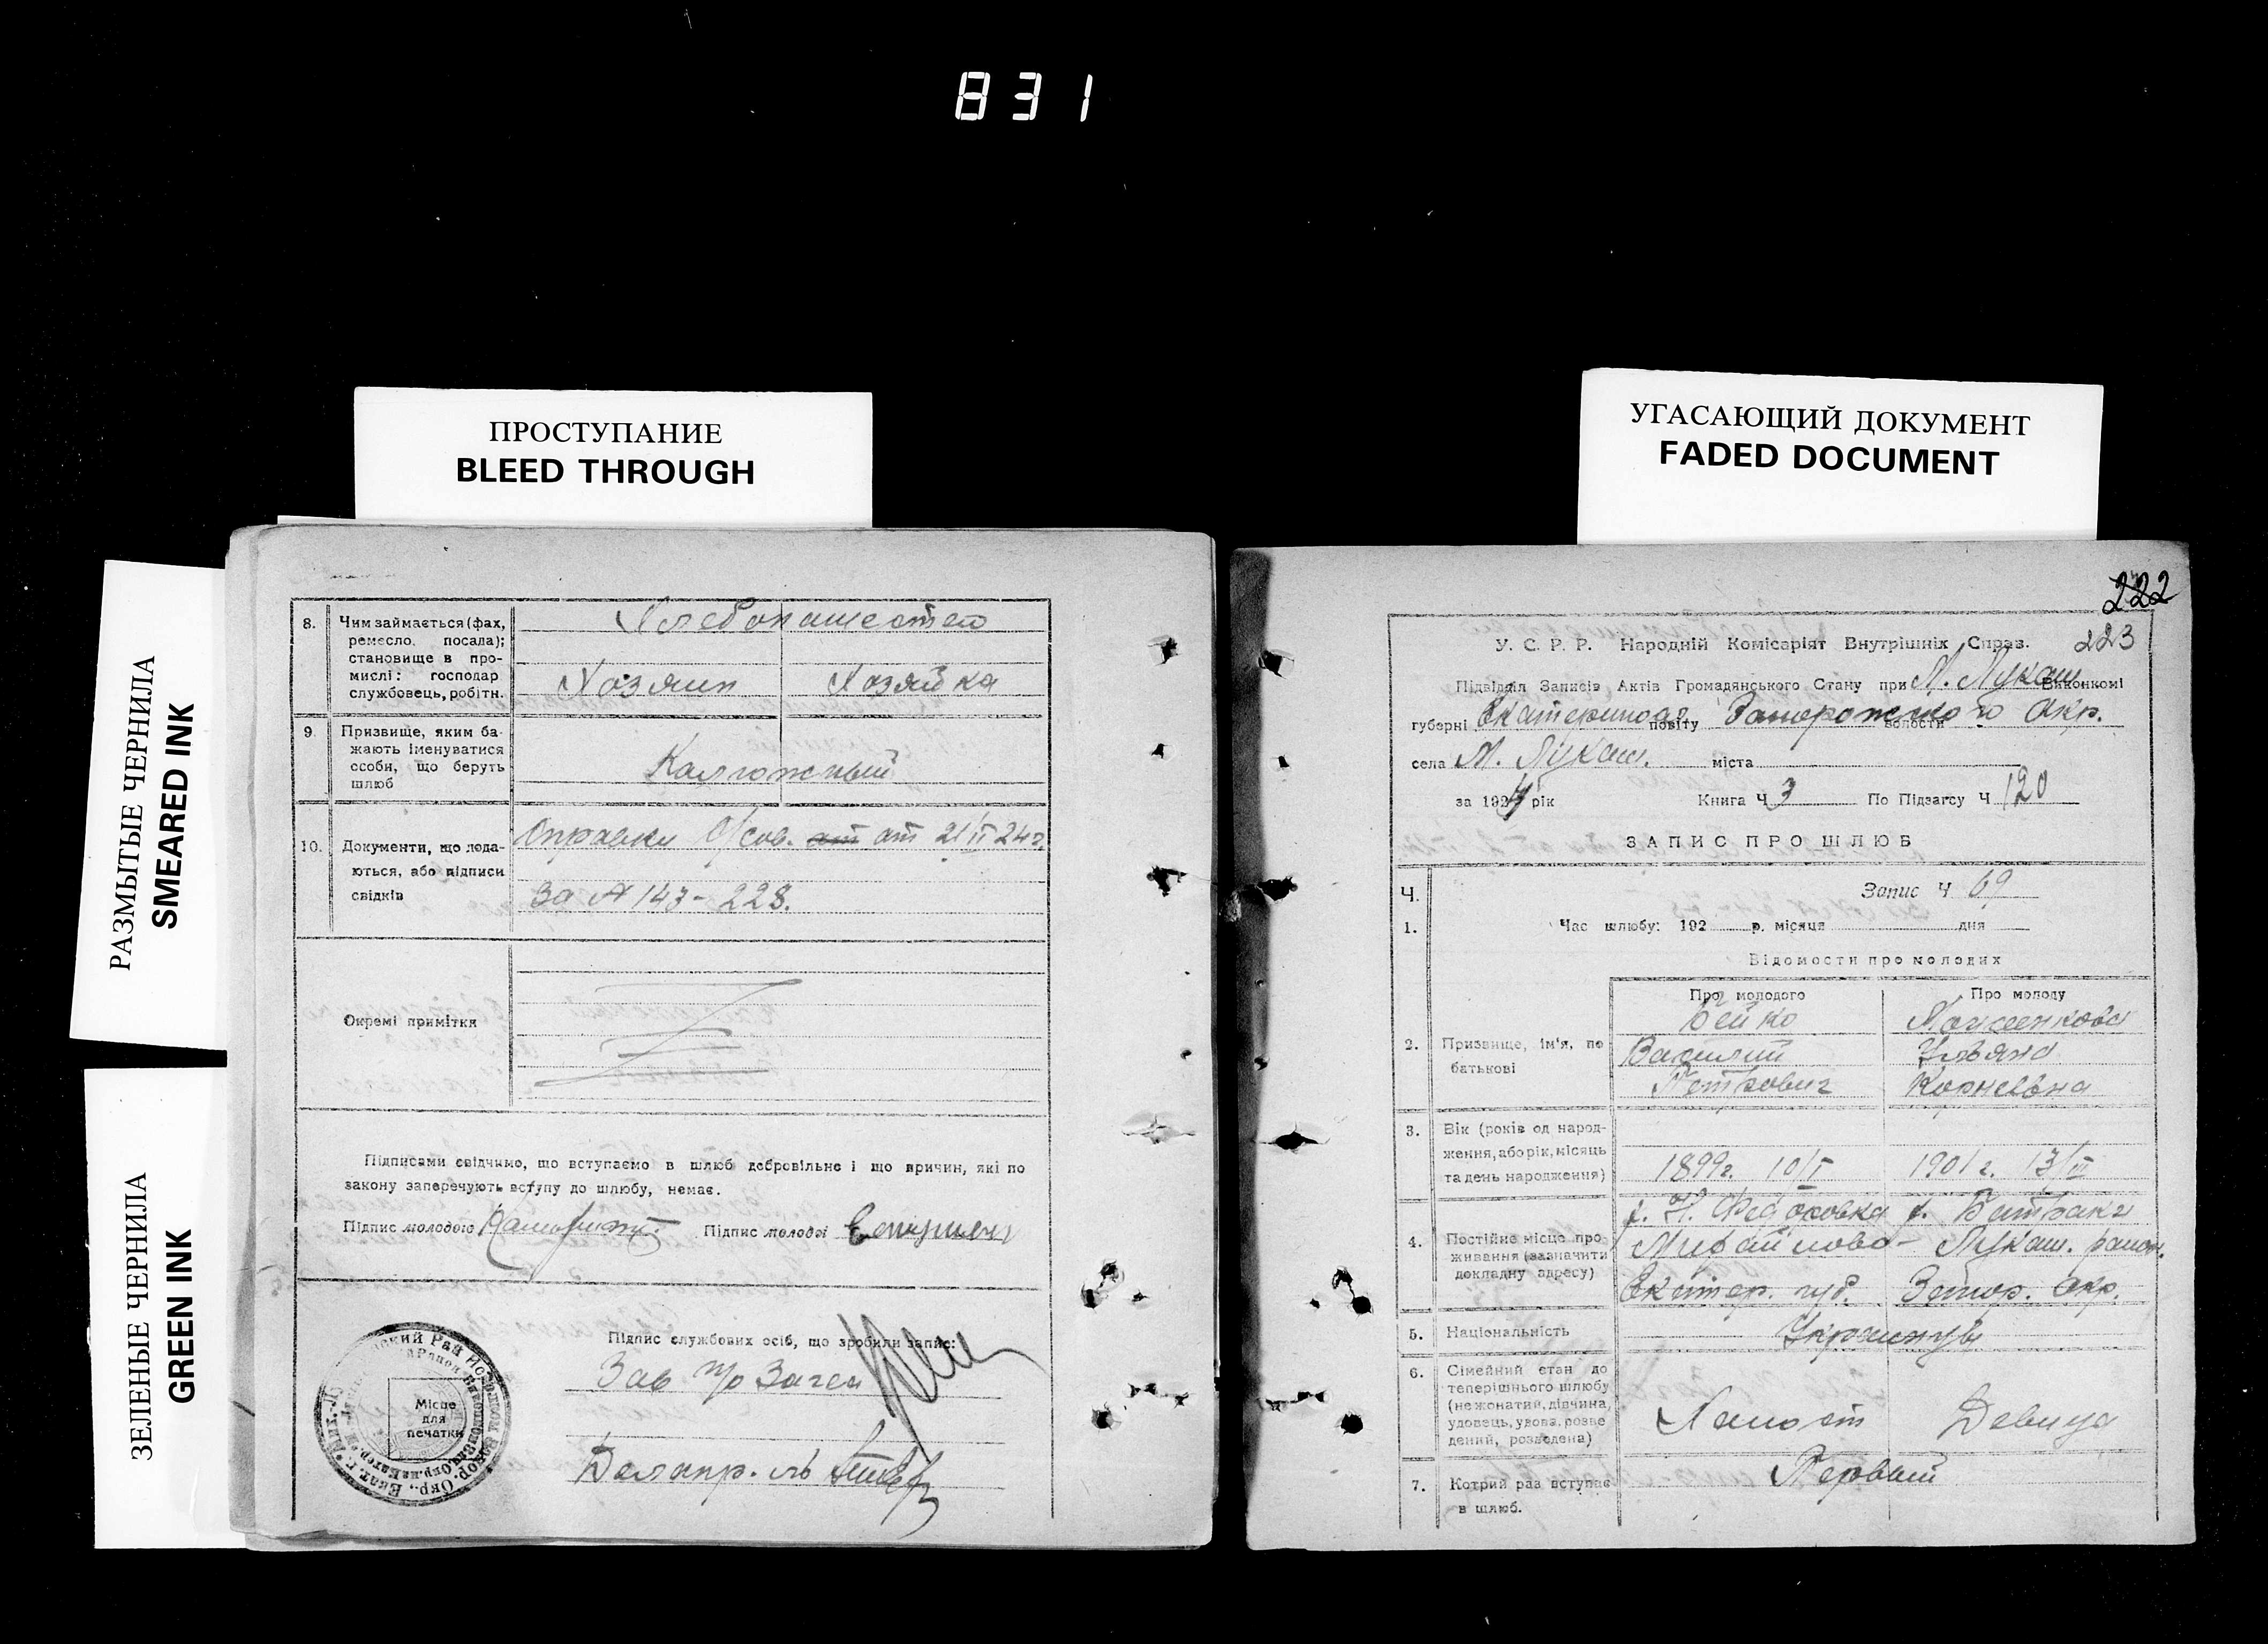 831
ПРОСТУПАНИЕ
BLEED THROUGH
УГАСАЮЩИЙ ДОКУМЕНТ
FADED DOCUMENT
РАЗМЫТЫЕ ЧЕРНИЛА
SMEARED INK
ЗЕЛЕНЫЕ ЧЕРНИЛА
GREEN INK
8. Чим займається (фах,
ремесло, посада);
становище в про-
мислі: господар
службовець, робітн.
Хлебопашество
Хозяин Хозяйка
9. Призвище, яким ба-
жають іменуватися
особи, що беруть
шлюб
10. Документи, що пода-
ються, або підписи
свідків
Справки С/сов. от 21/II 24г.
За № 143-228.
Окремі примітки
Підписами свідчимо, що вступаємо в шлюб добровільно і що причин, які по
закону заперечують вступу до шлюбу, немає.
Підпис молодого Підпис молодої
Підпис службових осіб, що зробили запис:
Зав
Делопр.
Місце
для
печатки
222
223
У. С. Р. Р. Народній Комісаріят Внутрішніх Справ.
Підвідділ Записів Актів Громадянського Стану при М. Лукаш. Виконкомі
губерні Екатеринос. повіту Запорожского волости окр.
села М. Лукаш. міста
за 1924 рік Книга Ч 3 По Підзагсу Ч 120
ЗАПИС ПРО ШЛЮБ
Ч. Запис Ч 69
1. Час шлюбу: 192 р. місяця дня
Відомости про молодих
Про молодого Про молоду
2. Призвище, ім'я, по
батькові
Бейко
Василий Ульяна
Петрович Корнеевна
3. Вік (років од народ-
ження, або рік, місяць
та день народження)
1899г. 10/I 1901г.
4. Постійне місце про-
живання (зазначити
докладну адресу)
Михайлово- Лукаш. район.
Екатер. губ. Запор. окр.
5. Національність
6. Сімейний стан до
теперішнього шлюбу
(нежонатий, дівчина,
удовець, удова, розве
дений, розведена)
Холост Девица
7. Котрий раз вступає
в шлюб.
Первый